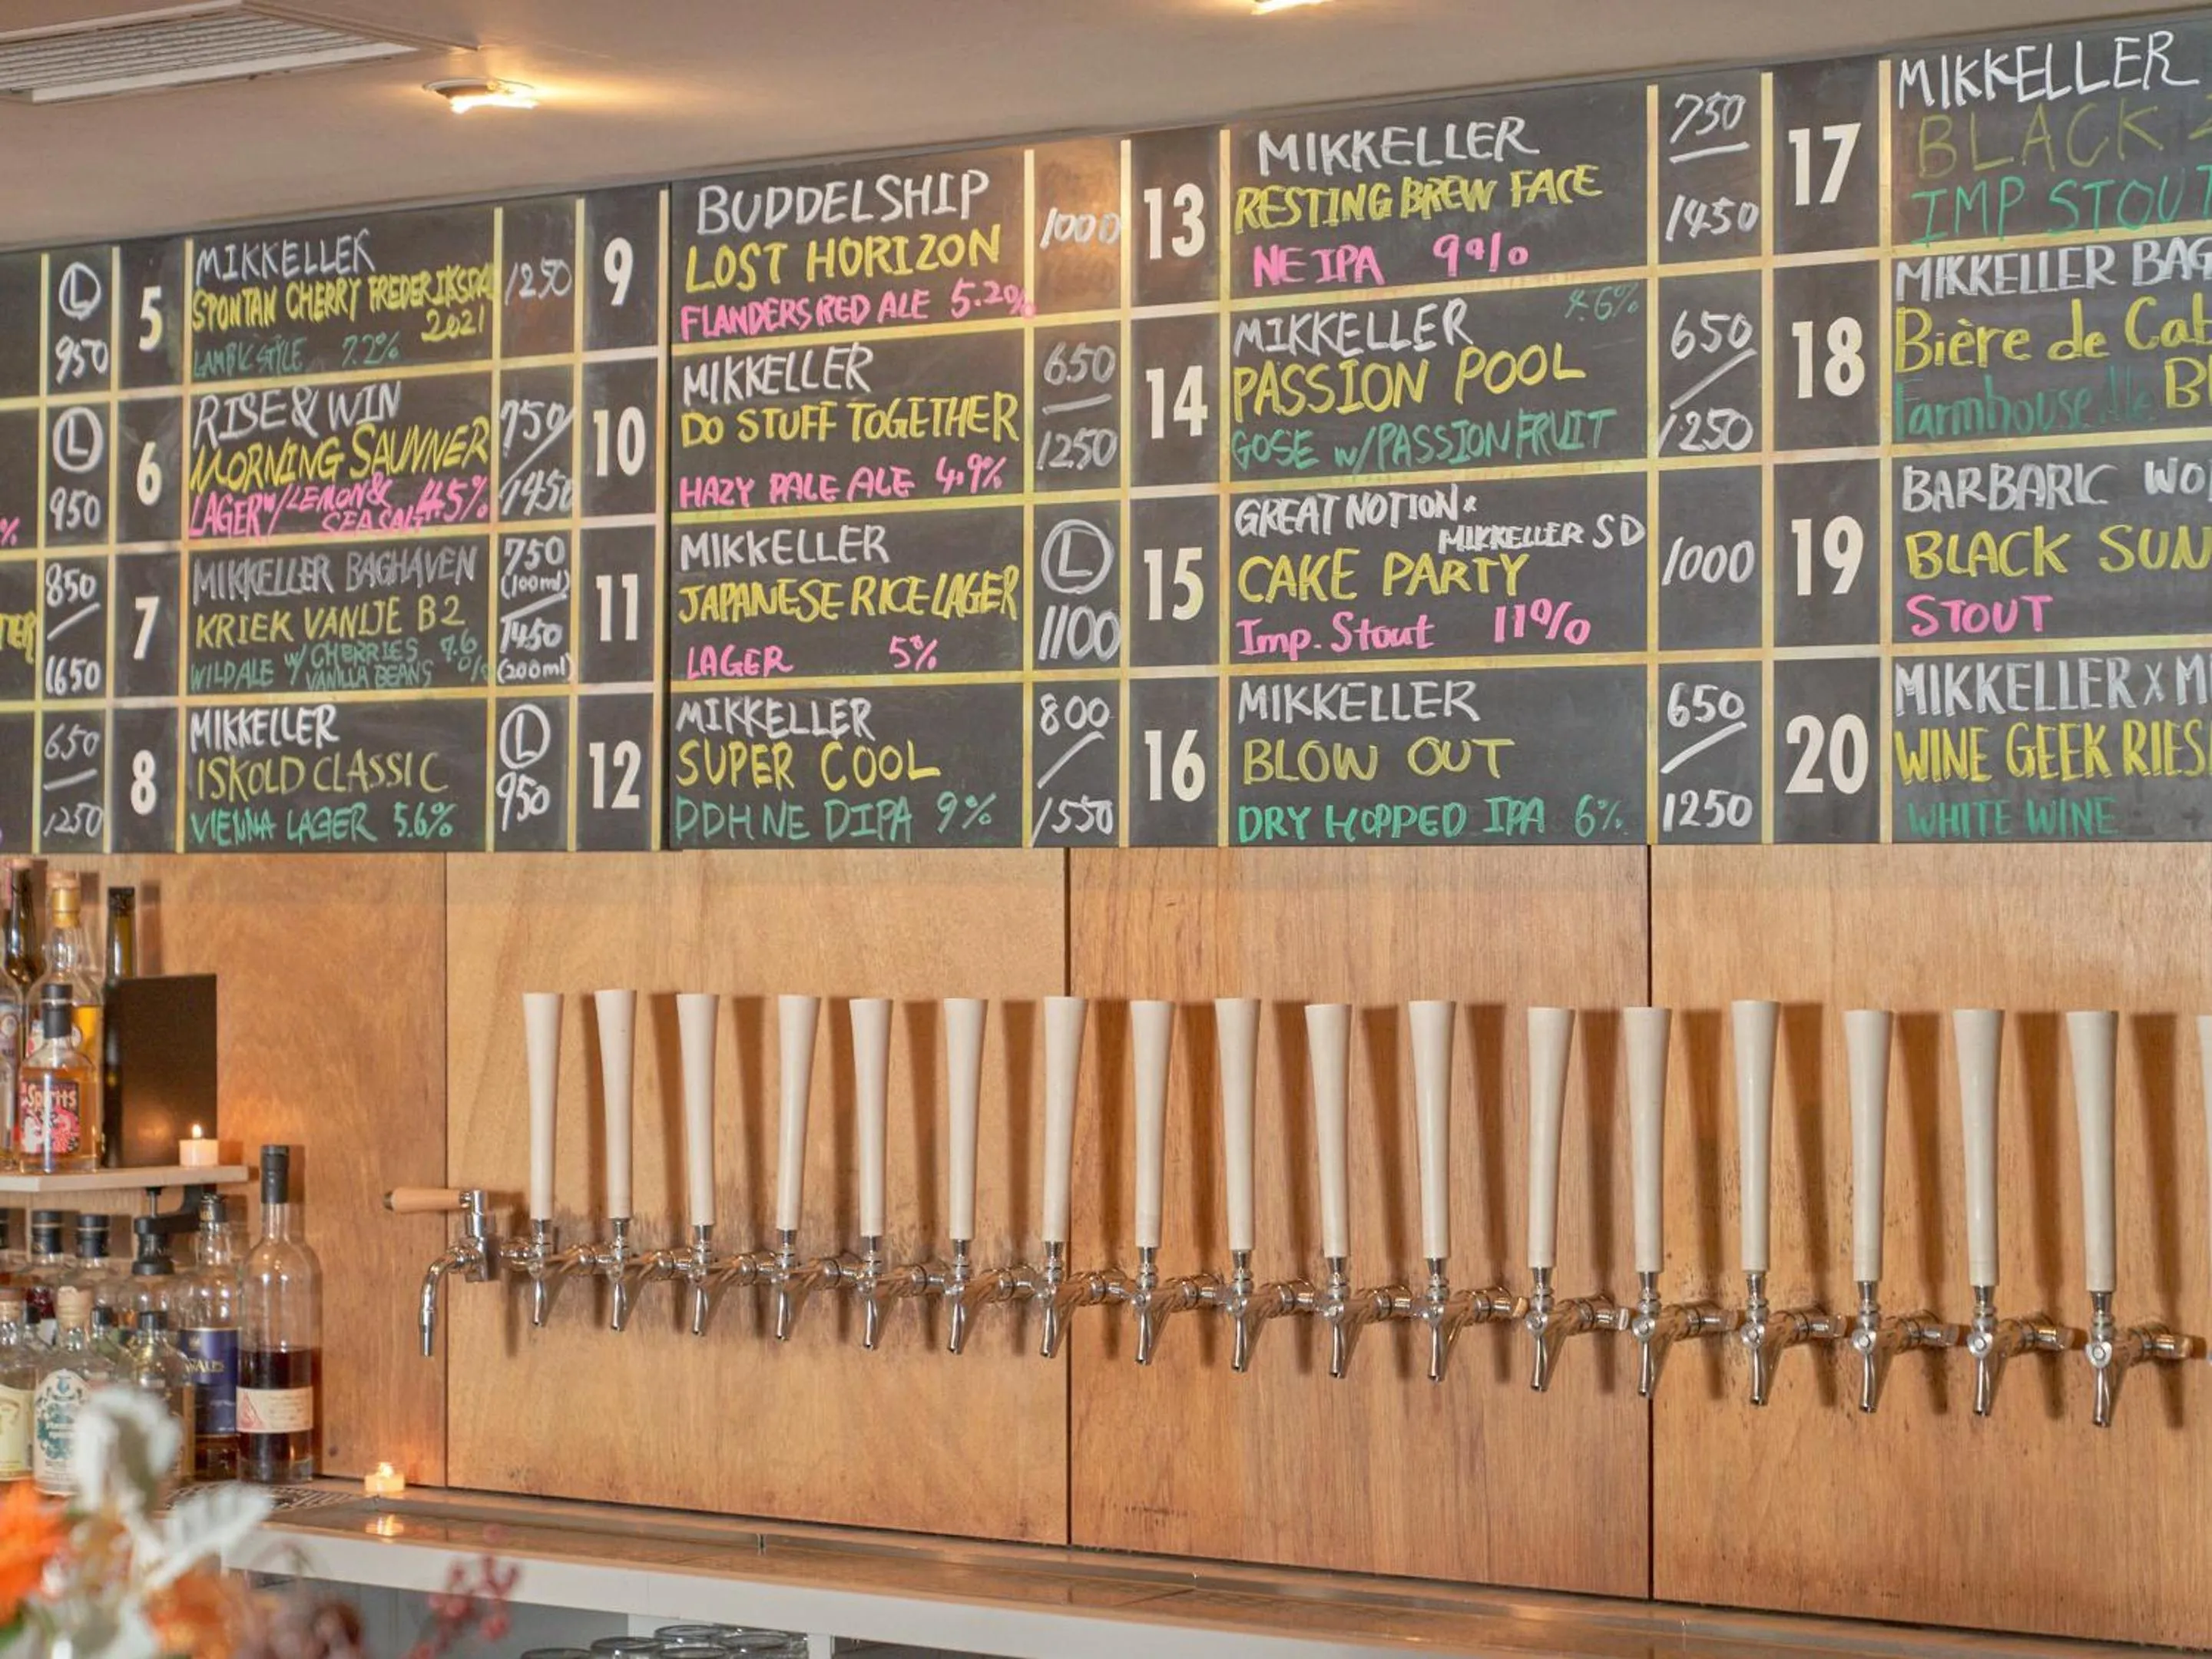 L
950
L
950
%
850
1650
650
1250
5
MIKKELLER
SPONTAN CHERRY FREDERIKSDAL
2021
LAMBIC STYLE 7.2%
1250
6
RISE & WIN
MORNING SAUNNER
LAGER W/ LEMON &
SEA SALT 4.5%
750/
1450
7
MIKKELLER BAGHAVEN
KRIEK VANIJE B2
WILD ALE W/ CHERRIES 7.6
VANILLA BEANS %
750
(100ml)
1450
(200ml)
8
MIKKELLER
ISKOLD CLASSIC
VIENNA LAGER 5.6%
L
950
9
BUDDELSHIP
LOST HORIZON
FLANDERS RED ALE 5.2%
1000
10
MIKKELLER
DO STUFF TOGETHER
HAZY PALE ALE 4.9%
650
1250
11
MIKKELLER
JAPANESE RICE LAGER
LAGER 5%
L
1100
12
MIKKELLER
SUPER COOL
DDH NE DIPA 9%
800
1550
13
MIKKELLER
RESTING BREW FACE
NE IPA 9%
750
1450
14
MIKKELLER 4.6%
PASSION POOL
GOSE w/PASSION FRUIT
650
1250
15
GREAT NOTION x
MIKKELLER SD
CAKE PARTY
Imp. Stout 11%
1000
16
MIKKELLER
BLOW OUT
DRY HOPPED IPA 6%
650
1250
17
MIKKELLER
BLACK
IMP STOUT
18
MIKKELLER BAG
Bière de Cab
Farmhouse Ale
19
BARBARIC WO
BLACK SUN
STOUT
20
MIKKELLER X MI
WINE GEEK RIES
WHITE WINE
Spirits